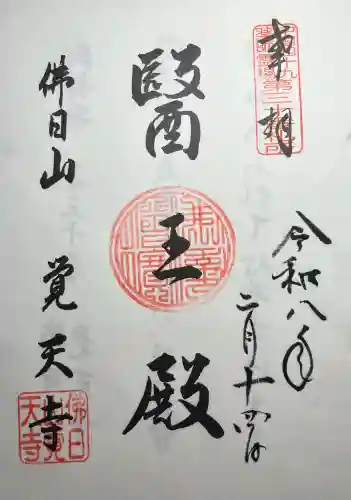 奉拝
令和八年
二月十四日
醫王殿
佛日山
覚天寺
佛日
山覚
天寺